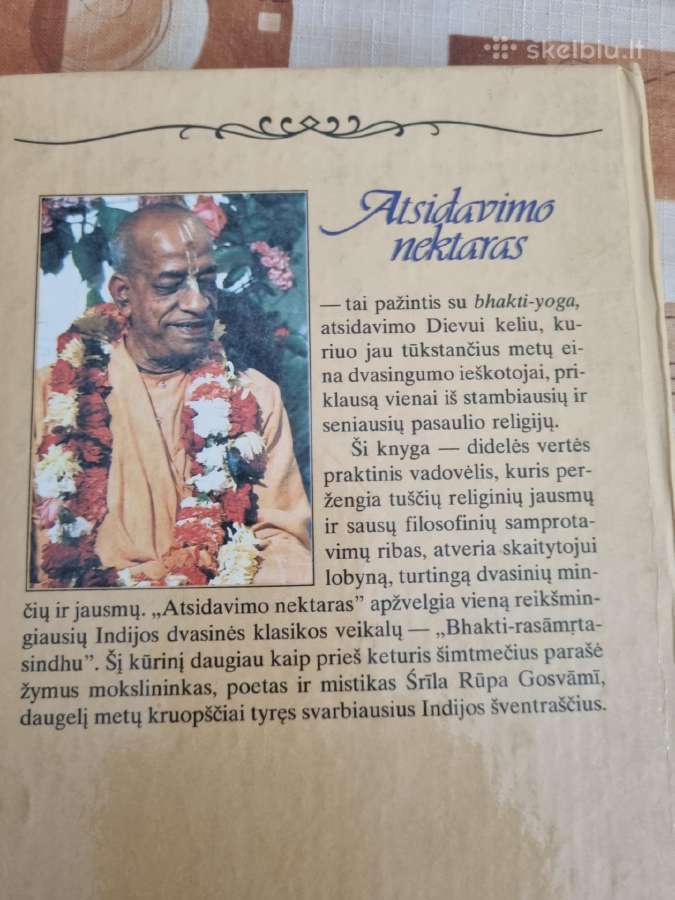 skelbiu.lt
Atsidavimo
nektaras
— tai pažintis su bhakti-yoga,
atsidavimo Dievui keliu, ku-
riuo jau tūkstančius metų ei-
na dvasingumo ieškotojai, pri-
klausą vienai iš stambiausių ir
seniausių pasaulio religijų.
Ši knyga — didelės vertės
praktinis vadovėlis, kuris per-
žengia tuščių religinių jausmų
ir sausų filosofinių samprota-
vimų ribas, atveria skaitytojui
lobyną, turtingą dvasinių min-
čių ir jausmų. „Atsidavimo nektaras” apžvelgia vieną reikšmin-
giausių Indijos dvasinės klasikos veikalų — „Bhakti-rasāmṛta-
sindhu”. Šį kūrinį daugiau kaip prieš keturis šimtmečius parašė
žymus mokslininkas, poetas ir mistikas Śrīla Rūpa Gosvāmī,
daugelį metų kruopščiai tyręs svarbiausius Indijos šventraščius.